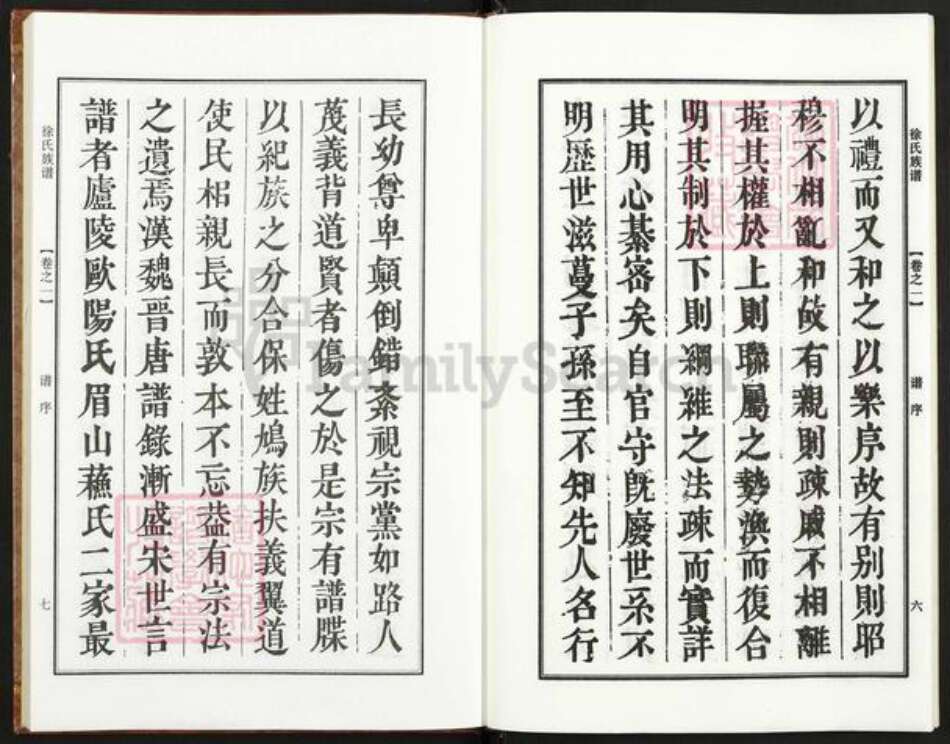 徐氏族谱
【卷之一】
谱序
六
以禮而又和之以樂序故有别則昭
穆不相亂和故有親則疎戚不相離
握其權於上則聯屬之勢渙而復合
明其制於下則綱維之法疎而實詳
其用心綦密矣自官守既廢世系不
明歷世滋蔓子孫至不知先人名行
長幼尊卑顛倒錯紊視宗黨如路人
蔑義背道賢者傷之於是宗有譜牒
以紀族之分合保姓鳩族扶義翼道
使民相親長而敦本不忘葢有宗法
之遺焉漢魏晋唐譜錄漸盛宋世言
譜者廬陵歐陽氏眉山蘓氏二家最
徐氏族谱
【卷之一】
谱序
七
FamilySearch